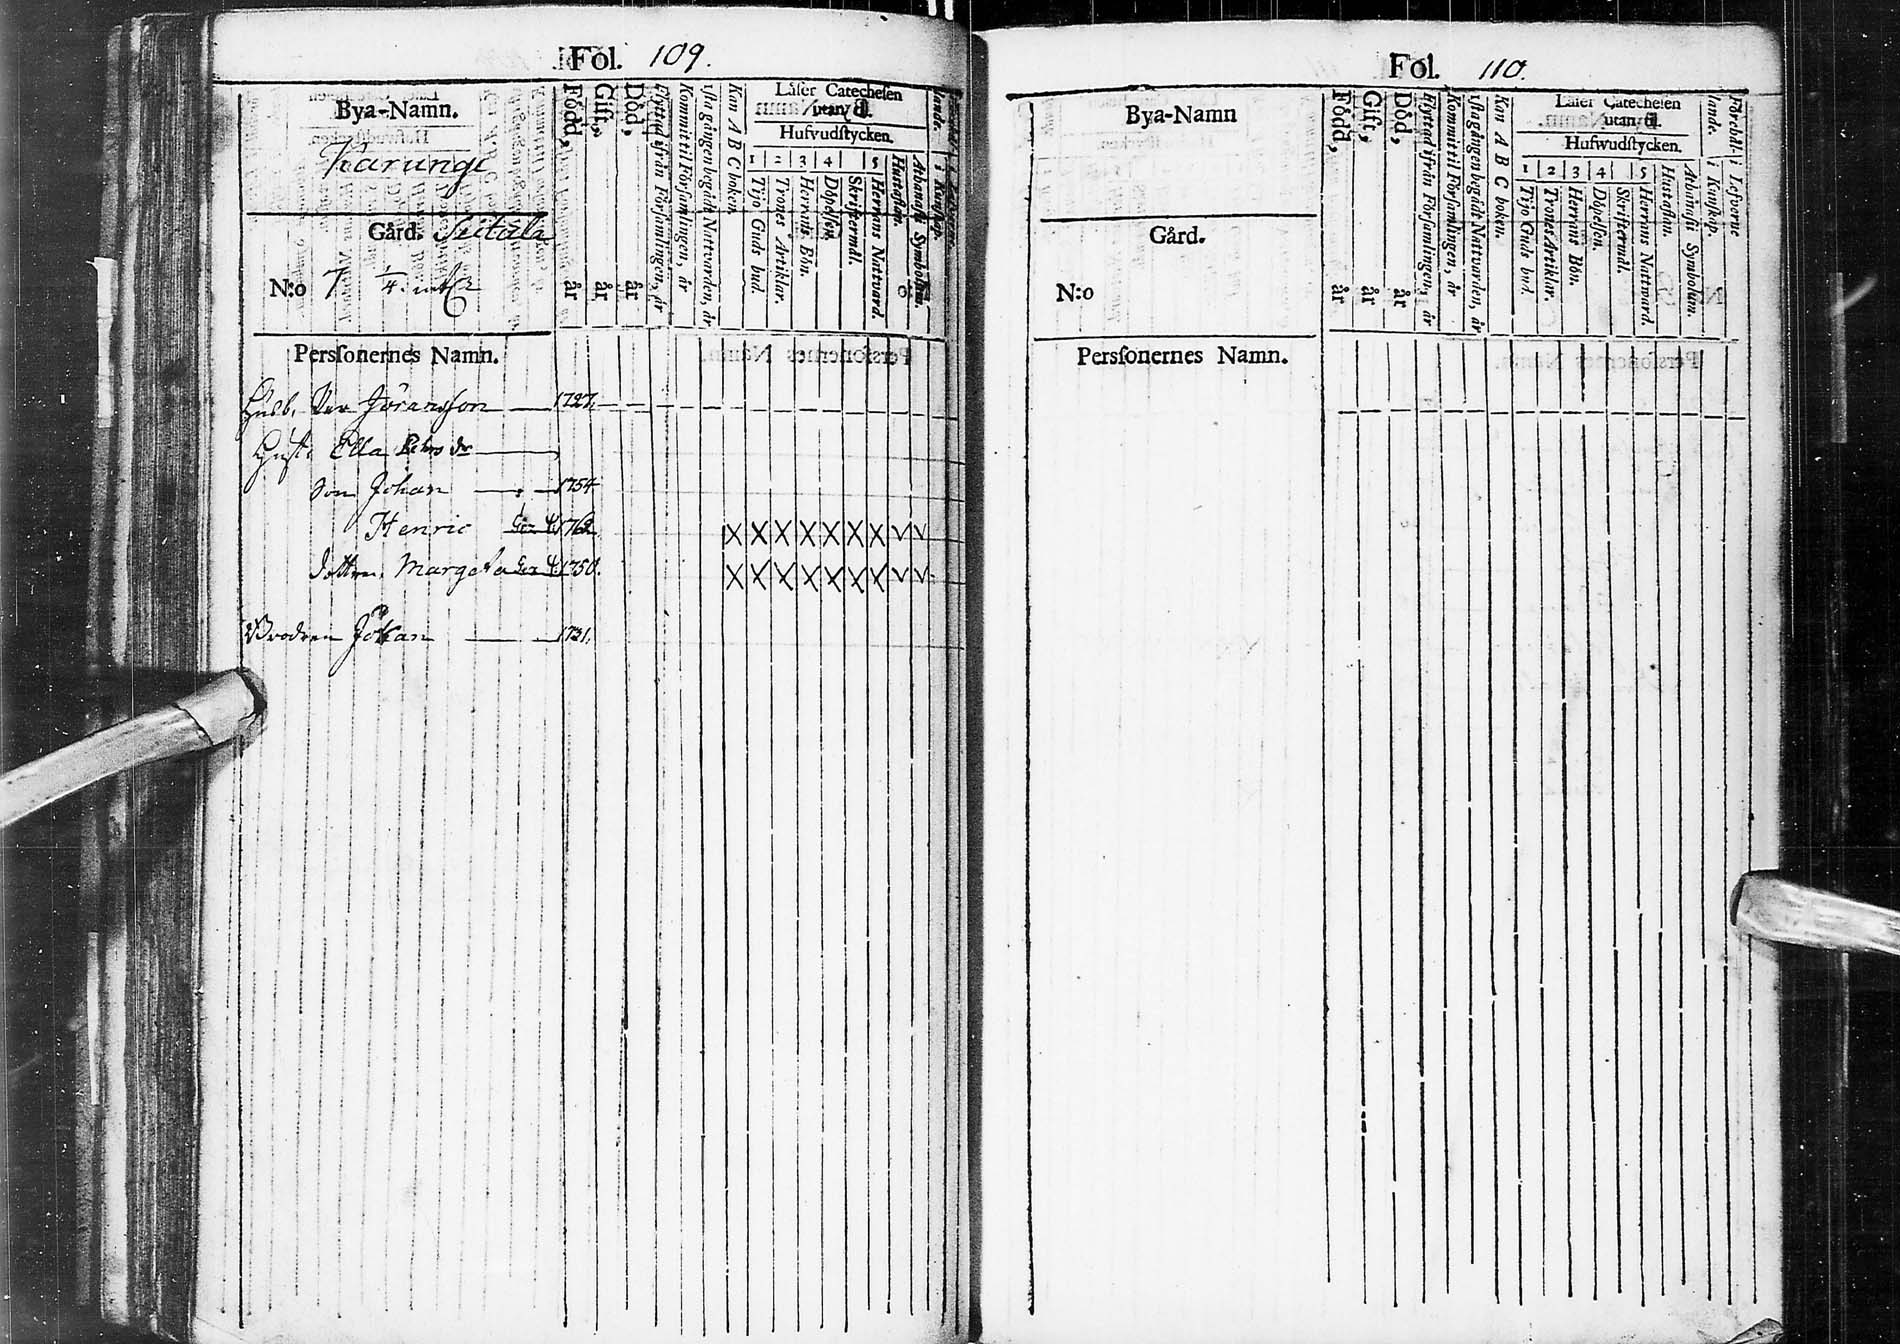 Fol. 109.
Bya-Namn.
Karungi
Gård. Seitala
N:o 7 1/4
Född, år
Gift, år
Död, år
Flyttad ifrån Församlingen, år
Kommit til Församlingen, år
1sta gången begådt Nattvarden, år
Kan A B C boken.
Läser Catechesen
utan til.
Hufvudstycken.
1 2 3 4 5
Tijo Guds bud.
Trones Artiklar.
Herrans Bön.
Döpelsen.
Skriftermål.
Herrans Natvard.
Hustaflan.
Athanasii Symbolum.
Perssonernes Namn.
Husb. Per Jöransson 1727.
Hust. Ella Pehrs dr
Son Johan 1754
Henric 1762
dottren Margeta 1750.
X X X X X X X V V
X X X X X X X V V
Brodren Johan 1731.
Fol. 110.
Bya-Namn
Gård.
N:o
Född, år
Gift, år
Död, år
Flyttad ifrån Församlingen, år
Kommit til Församlingen, år
1sta gången begådt Nattvarden, år
Kan A B C boken.
Läser Catechesen
utan til.
Hufwudstycken.
1 2 3 4 5
Tijo Guds bud.
Trones Artiklar.
Herrans Bön.
Döpelsen.
Skriftermål.
Herrans Nattward.
Hustaflan.
Athanasii Symbolum.
i Kunskap.
i Lefverne
Perssonernes Namn.